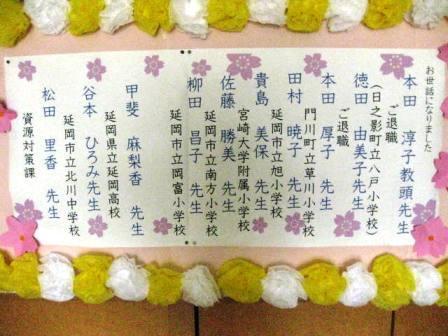 お世話になりました
本田 淳子教頭先生
ご退職
徳田 由美子先生
（日之影町立八戸小学校）
ご退職
本田 厚子 先生
門川町立草川小学校
田村 暁子 先生
延岡市立旭小学校
貴島 美保 先生
宮崎大学附属小学校
佐藤 勝美 先生
延岡市立南方小学校
柳田 昌子 先生
延岡市立岡富小学校
甲斐 麻梨香 先生
延岡県立延岡高校
谷本 ひろみ先生
延岡市立北川中学校
松田 里香 先生
資源対策課